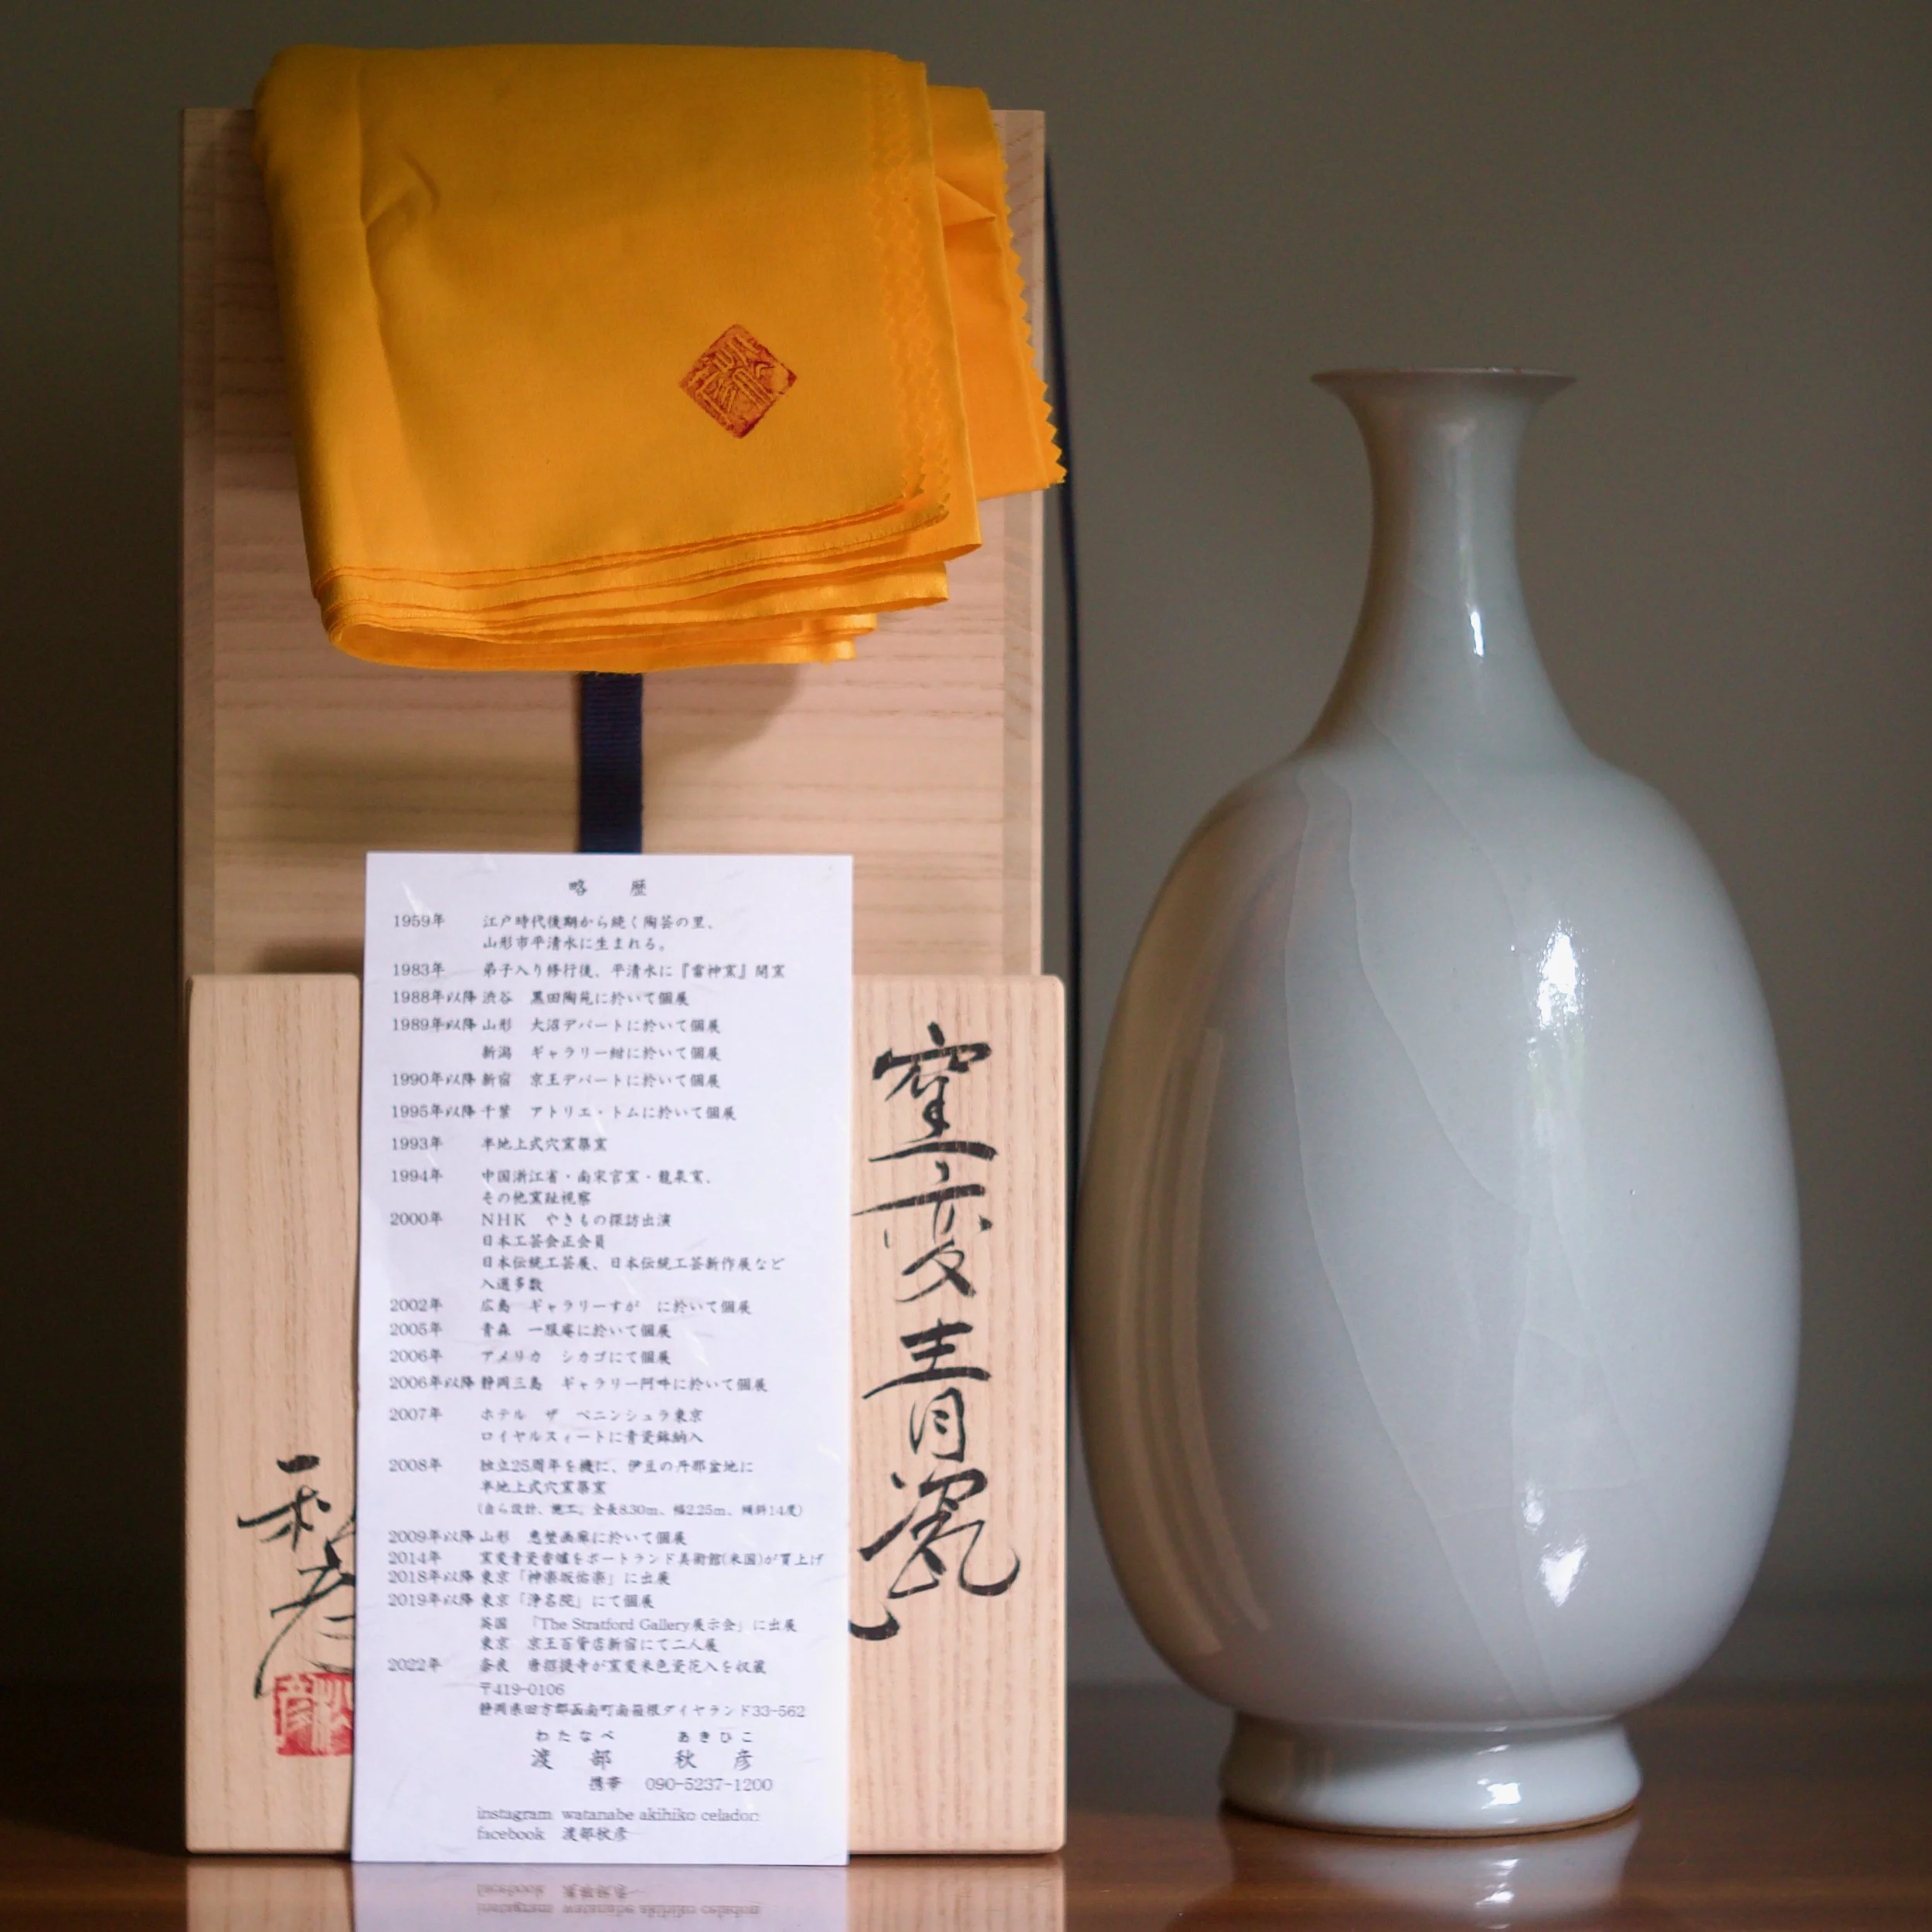 略 歴
1959年 江戸時代後期から続く陶芸の里、
山形市平清水に生まれる。
1983年 弟子入り修行後、平清水に『雷神窯』開窯
1988年以降 渋谷 黒田陶苑に於いて個展
1989年以降 山形 大沼デパートに於いて個展
新潟 ギャラリー紺に於いて個展
1990年以降 新宿 京王デパートに於いて個展
1995年以降 千葉 アトリエ・トムに於いて個展
1993年 半地上式穴窯築窯
1994年 中国浙江省・南宋官窯・龍泉窯、
その他窯趾視察
2000年 NHK やきもの探訪出演
日本工芸会正会員
日本伝統工芸展、日本伝統工芸新作展など
入選多数
2002年 広島 ギャラリーすが に於いて個展
2005年 青森 一服庵に於いて個展
2006年 アメリカ シカゴにて個展
2006年以降 静岡三島 ギャラリー阿吽に於いて個展
2007年 ホテル ザ ペニンシュラ東京
ロイヤルスィートに青瓷鉢納入
2008年 独立25周年を機に、伊豆の丹那盆地に
半地上式穴窯築窯
(自ら設計、施工。全長8.30m、幅2.25m、傾斜14度)
2009年以降 山形 恵埜画廊に於いて個展
2014年 窯変青瓷香爐をポートランド美術館(米国)が買上げ
2018年以降 東京「神楽坂佑楽」に出展
2019年以降 東京「浄名院」にて個展
英国 「The Stratford Gallery展示会」に出展
東京 京王百貨店新宿にて二人展
2022年 奈良 唐招提寺が窯変米色瓷花入を収蔵
〒419-0106
静岡県田方郡函南町南箱根ダイヤランド33-562
わたなべ あきひこ
渡 部 秋 彦
携帯 090-5237-1200
instagram watanabe akihiko celadon
facebook 渡部秋彦
窯変青瓷
秋彦